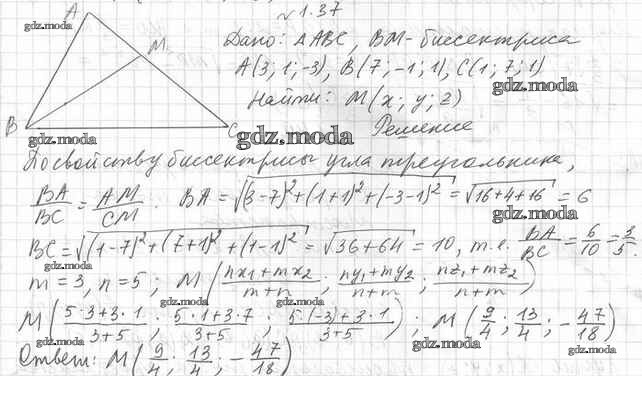 № 1.37
A
gdz.moda
M
Дано: △ABC, BM - биссектриса
A(3; 1; -3), B(7; -1; 1), C(1; 7; 1)
gdz.moda
Найти: M(x; y; z)
B
C
gdz.moda
gdz.moda
Решение
По свойству биссектрисы угла треугольника,
BA/BC = AM/CM. BA = √((3-7)² + (1+1)² + (-3-1)²) = √(16+4+16) = 6
BC = √((1-7)² + (7+1)² + (1-1)²) = √(36+64) = 10, т.е. BA/BC = 6/10 = 3/5.
gdz.moda
gdz.moda
m = 3, n = 5; M((nx₁+mx₂)/(m+n); (ny₁+my₂)/(n+m); (nz₁+mz₂)/(n+m))
gdz.moda
M((5·3+3·1)/(3+5); (5·1+3·7)/(3+5); (5·(-3)+3·1)/(3+5)); M(9/4; 13/4; -47/18)
gdz.moda
gdz.moda
gdz.moda
Ответ: M(9/4; 13/4; -47/18)